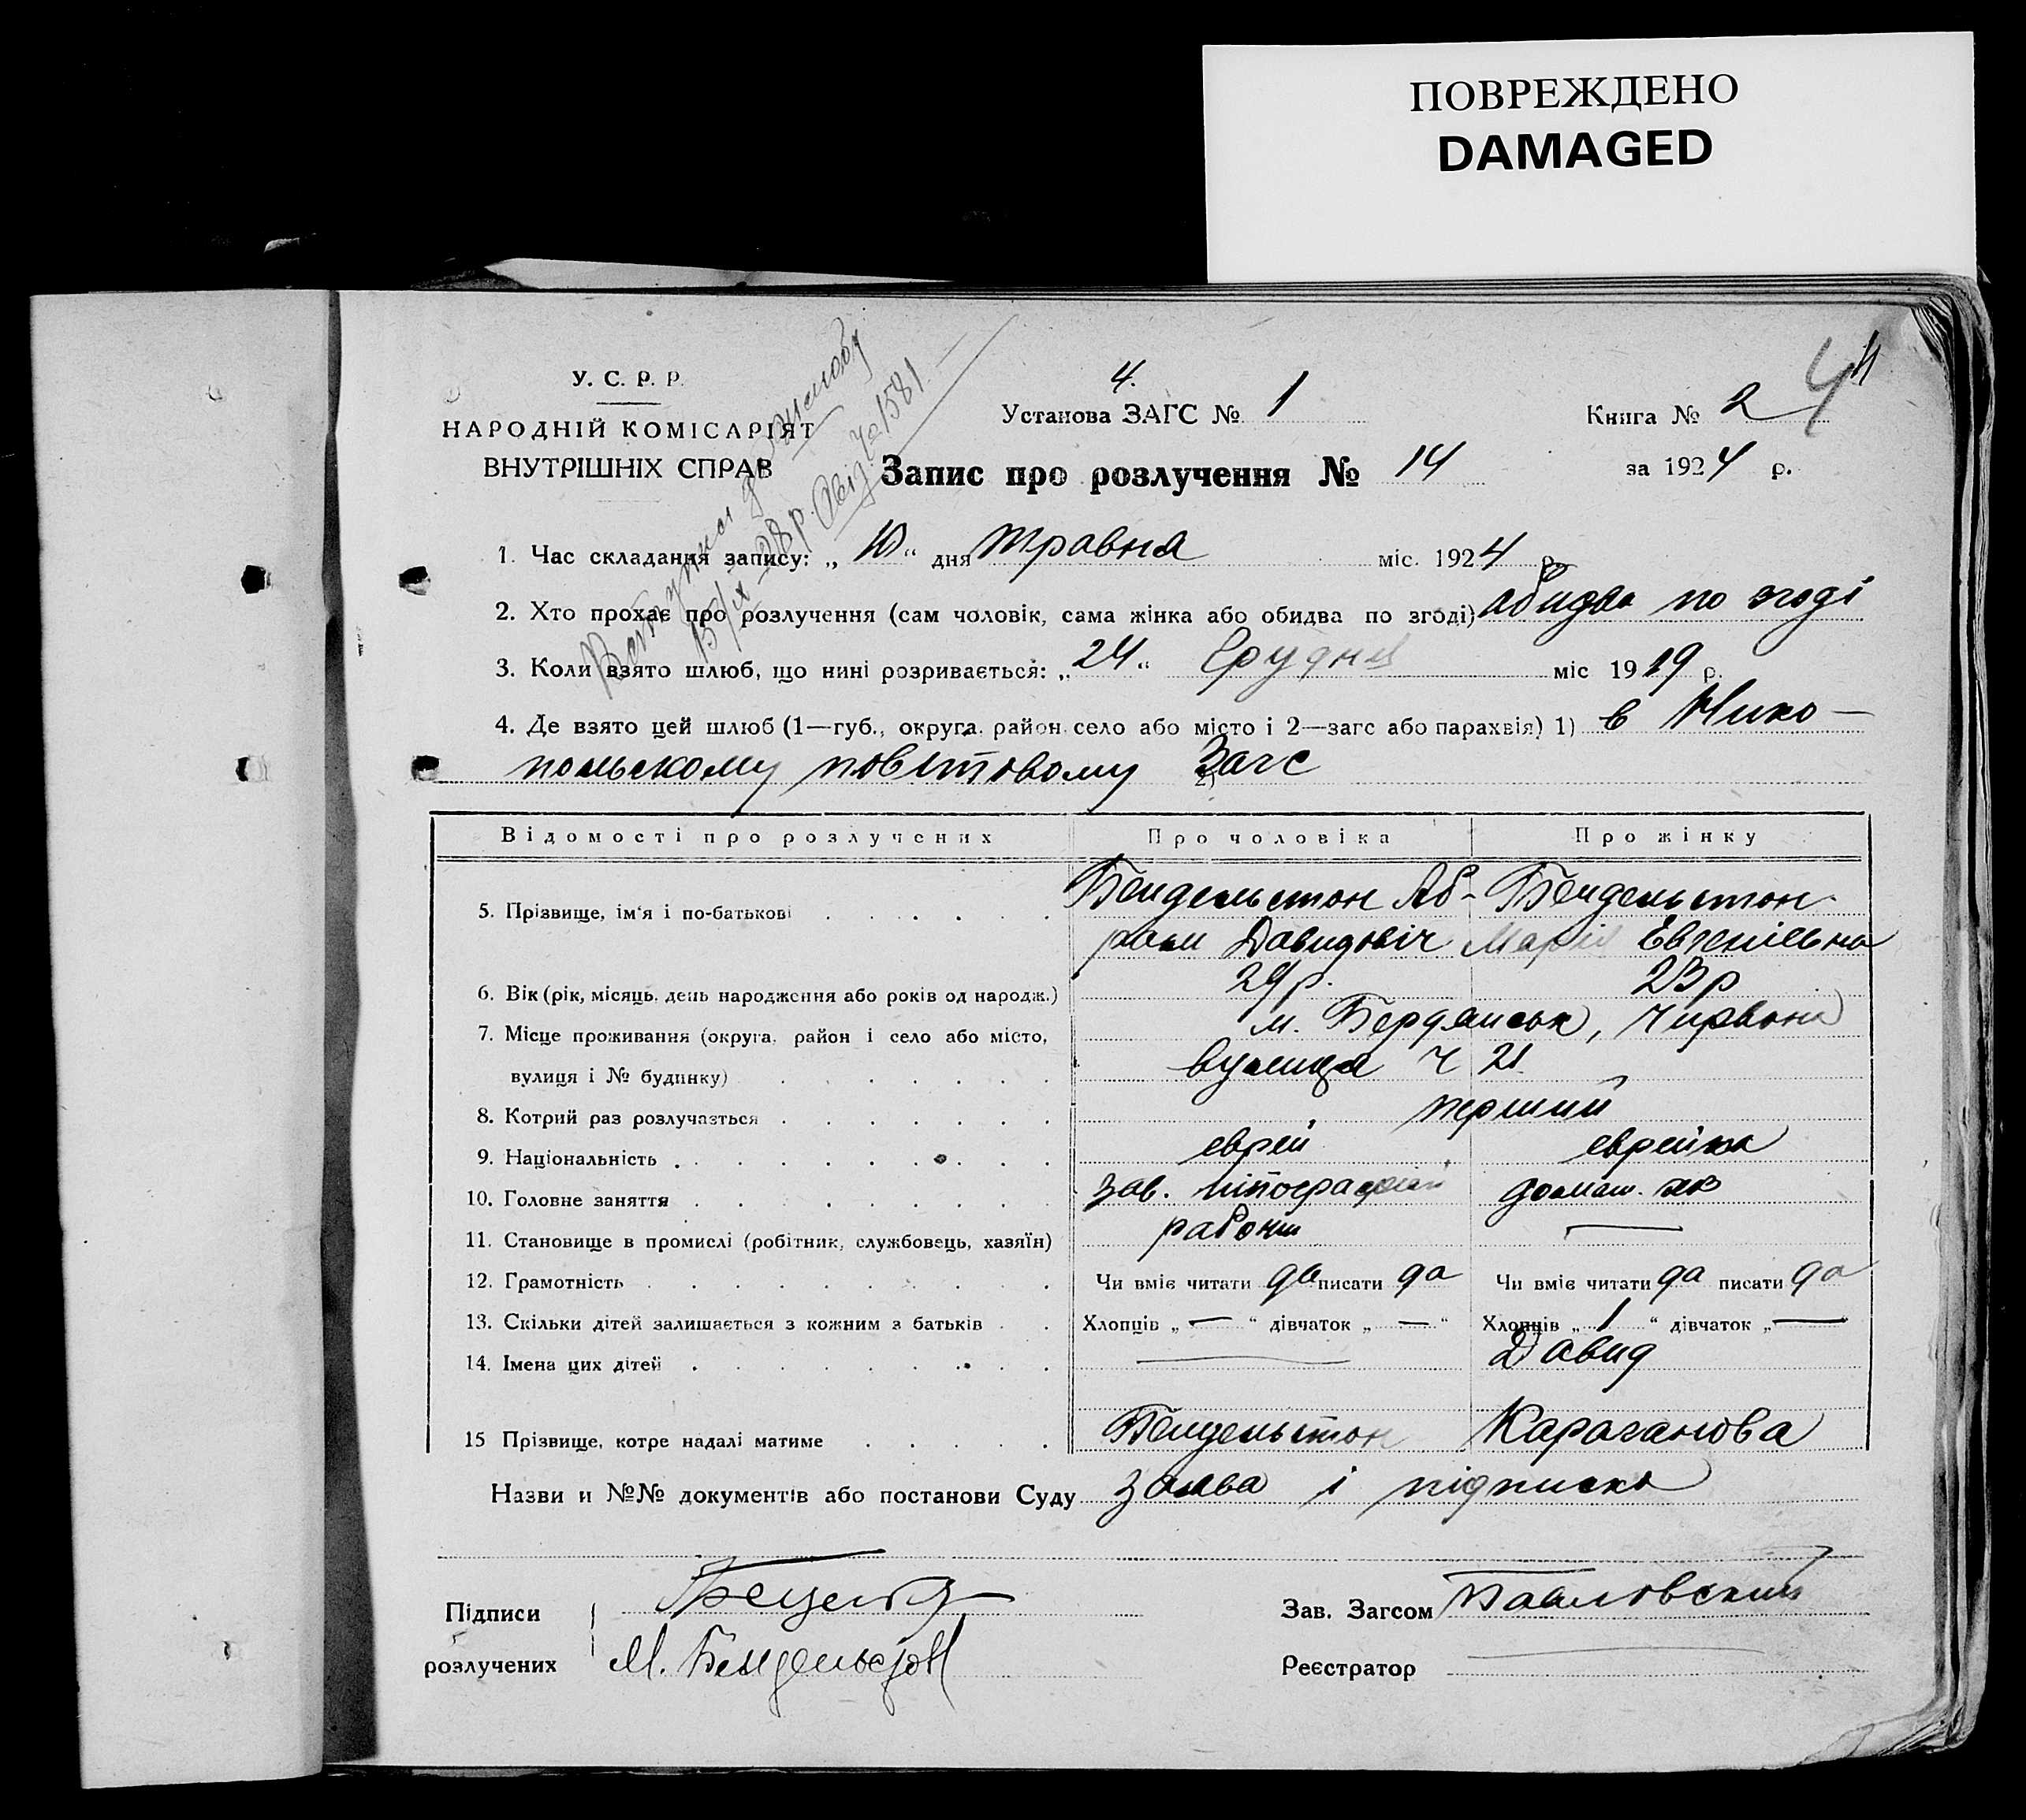 ПОВРЕЖДЕНО
DAMAGED
У. С. Р. Р.
НАРОДНІЙ КОМІСАРІЯТ
ВНУТРІШНІХ СПРАВ
4.
Установа ЗАГС № 1
Книга № 2
Запис про розлучення № 14
за 1924 р.
15/ІХ 28 р. № 1581
1. Час складання запису: „10“ дня травня міс. 1924 р.
2. Хто прохає про розлучення (сам чоловік, сама жінка або обидва по згоді) обидва по згоді
3. Коли взято шлюб, що нині розривається: „24“ Грудня міс 1919 р.
4. Де взято цей шлюб (1—губ., округа, район, село або місто і 2—загс або парахвія) 1) в Нико-
польскому повітовому 2) Загс
Відомості про розлучених Про чоловіка Про жінку
5. Прізвище, ім'я і по-батькові Бендельстон Аб- Бендельстон
рам Давидовіч Марія Евгенієвна
6. Вік (рік, місяць, день народження або років од народж.) 29 р. 23 р
7. Місце проживання (округа, район і село або місто, м. Бердянськ, Чирвона
вулиця і № будинку) вулиця ч 21
8. Котрий раз розлучається перший
9. Національність еврей еврейка
10. Головне заняття зав. тіпографіей домаш. хоз
11. Становище в промислі (робітник, службовець, хазяїн) —
12. Грамотність Чи вміє читати да писати да Чи вміє читати да писати да
13. Скільки дітей залишається з кожним з батьків Хлопців „—“ дівчаток „—“ Хлопців „1“ дівчаток „—“
14. Імена цих дітей — Давид
15 Прізвище, котре надалі матиме Бендельстон Караганова
Назви и №№ документів або постанови Суду заява і підписка
Підписи
розлучених М. Бендельстон
Зав. Загсом Павловский
Реєстратор —